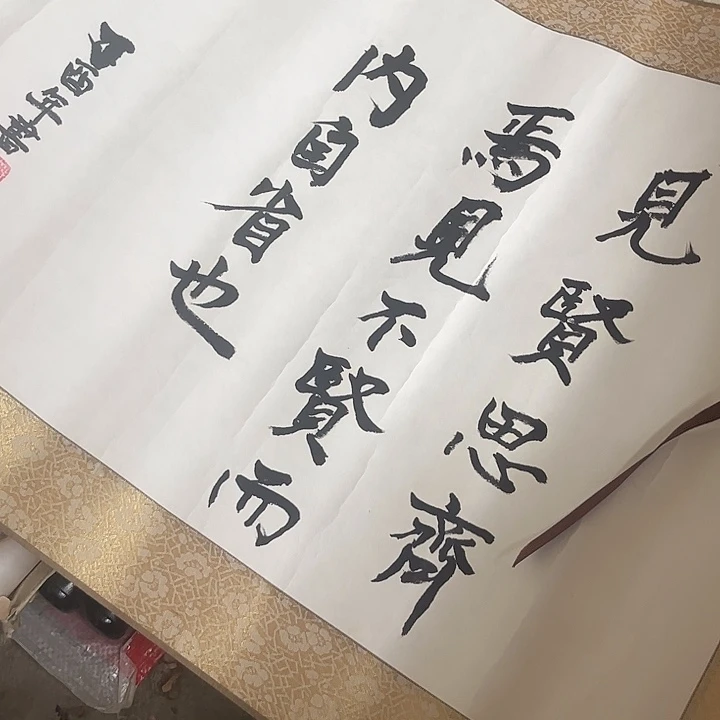 見賢思齊
焉見不賢而
內自省也
酉年